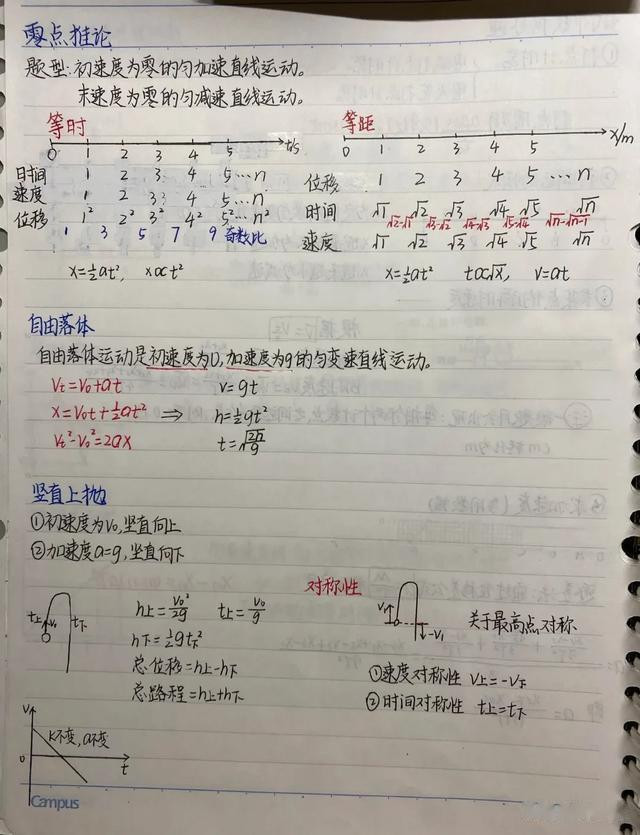 零点推论
题型:初速度为零的匀加速直线运动。
末速度为零的匀减速直线运动。
等时
0 1 2 3 4 5 t/s
时间 1 2 3 4 5…n
速度 1 2 3 4 5…n
位移 1² 2² 3² 4² 5²…n²
1 3 5 7 9 奇数比
x=½at², x∝t²
等距
0 1 2 3 4 5 x/m
位移 1 2 3 4 5 …n
时间 √1 √2 √3 √4 √5 √n
√2-√1 √3-√2 √4-√3 √5-√4 √n-√n-1
速度 √1 √2 √3 √4 √5 √n
x=½at² t∝√x, v=at
自由落体
自由落体运动是初速度为0,加速度为g的匀变速直线运动。
Vt=V₀+at v=gt
x=V₀t+½at² ⇒ h=½gt²
Vt²-V₀²=2ax t=√2h/g
竖直上抛
①初速度为V₀,竖直向上
②加速度a=g,竖直向下
t上 V₁ t下
h上=V₀²/2g t上=V₀/g
h下=½gt下²
总位移=h上-h下
总路程=h上+h下
对称性
V₁ -V₁
关于最高点对称
①速度对称性 V上=-V下
②时间对称性 t上=t下
V
K不变,a不变
0 t
Campus